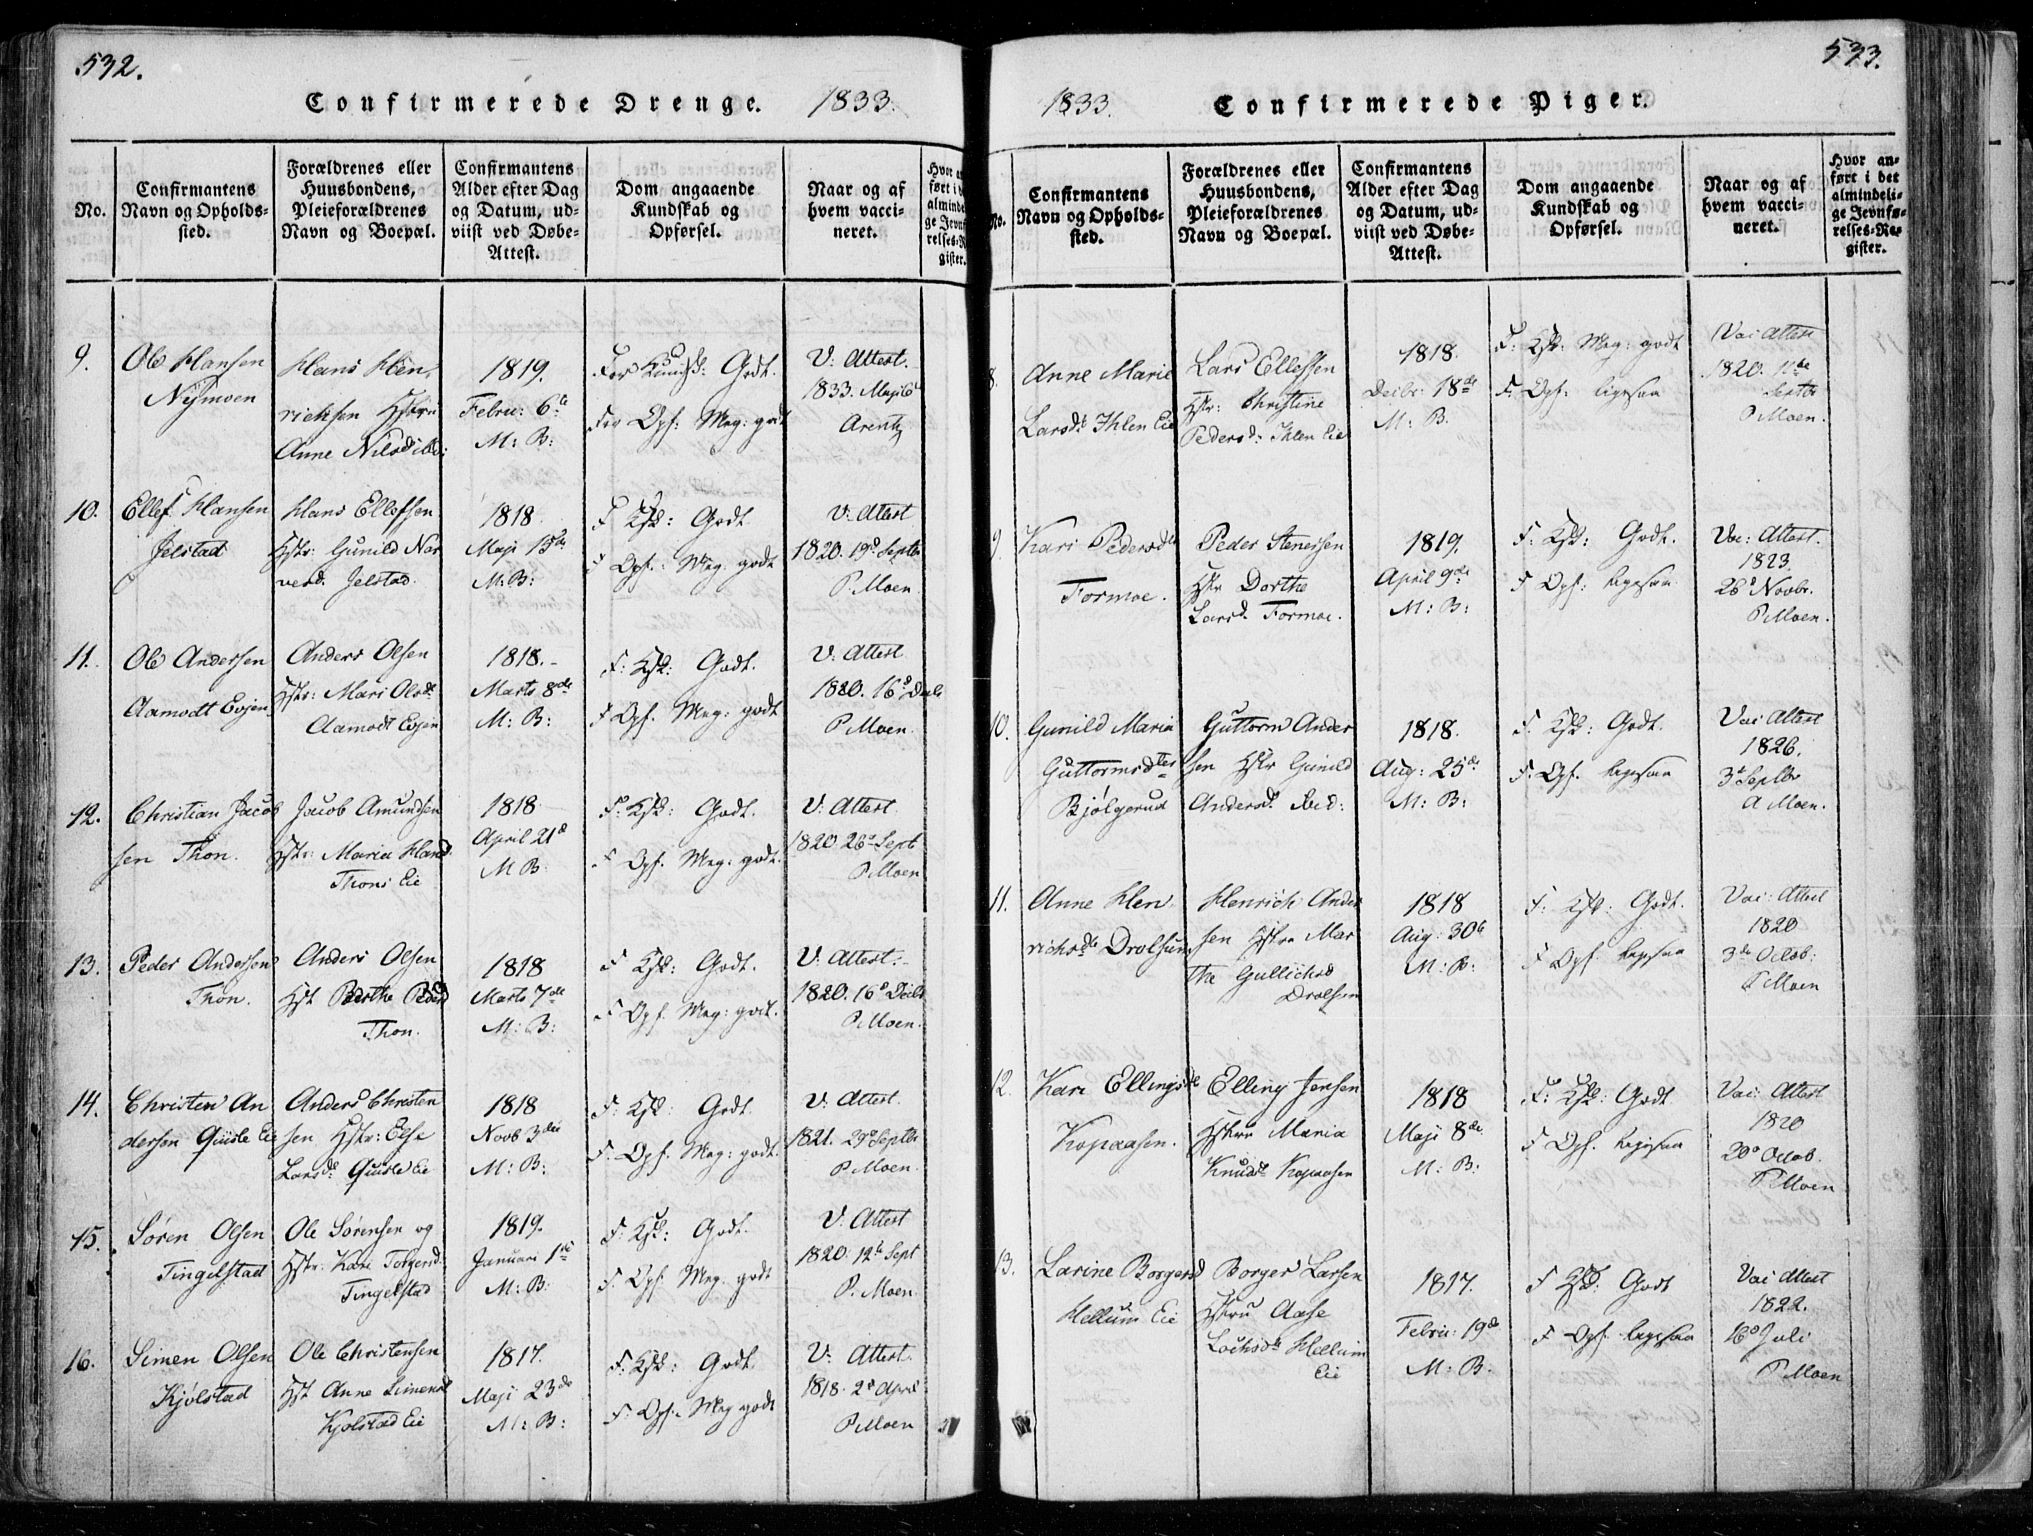 532.
Confirmerede Drenge. 1833.
No.
Confirmantens
Navn og Opholds-
sted.
Forældrenes eller
Huusbondens,
Pleieforældrenes
Navn og Boepæl.
Confirmantens
Alder efter Dag
og Datum, ud-
viist ved Døbe-
Attest.
Dom angaaende
Kundskab og
Opførsel.
Naar og af
hvem vacci-
neret.
9.
Ole Hansen
Nymoen
Hans Hen-
richsen Hstru
Anne Nilsd
1819.
Febru: 6te
M: B:
For Kundsk: Godt.
For Opf: Meg: godt
V: Attest.
1833. Maji 6
Arentz
10.
Ellef Hansen
Jelstad
Hans Ellefsen
Hstr: Gunild Nar
vesd. Jelstad.
1818
Maji 15de
M: B:
F Ksk: Godt
F Opf: Meg: godt
V: Attest
1820. 19d Septbr
P. Moen
11.
Ole Andersen
Aamodt Evjen
Anders Olsen
Hstr: Mari Olsdt
Aamodt Evjen
1818.
Marts 8de
M: B:
F: Ksk: Godt.
F Opf. Meg: godt
V: Attest
1820. 16d Decbr
P Moen.
12.
Christian Jacob
sen Thon.
Jacob Amundsen
Hstr: Maria Hansd
Thons Eie
1818
April 21d
M B
F: Ksk: Godt.
F Opf. Meg: godt.
V: Attest
1820 26d Sept
P Moen
13.
Peder Andersen
Thon.
Anders Olsen
Hst Berthe Pedersd
Thon.
1818
Marts 7de
M: B:
F Ksk: Godt.
F Opf. Meg: godt.
V: Attest.
1820. 16d Decbr
P Moen.
14.
Christen An
dersen Quisle Eie
Anders Christen
sen Hstr: Else
Larsdr Quisle Eie
1818
Novb 3die
M: B:
F: Ksk: Godt.
F: Opf. Meg: godt.
V: Attest.
1821. 29d Septbr
P. Moen
15.
Søren Olsen
Tingelstad
Ole Sørensen og
Hstr: Kari Torgersd.
Tingelstad
1819.
Januari 1ste
M: B:
F: Ksk: Godt.
F: Opf. Meg: godt
V: Attest
1820. 12te Sept
P. Moen
16.
Simen Olsen
Kjølstad
Ole Christensen
Hst Anne Simensd
Kjølstad Eie
1817.
Maji 23de
M: B:
F: Ksk: Godt.
F: Opf: Meg godt
V: Attest.
1818. 2d April
P Moen
533.
1833. Confirmerede Piger.
No.
Confirmantens
Navn og Opholds-
sted.
Forældrenes eller
Huusbondens,
Pleieforældrenes
Navn og Boepæl.
Confirmantens
Alder efter Dag
og Datum, ud-
viist ved Døbe-
Attest.
Dom angaaende
Kundskab og
Opførsel.
Naar og af
hvem vacci-
neret.
Hvor an-
ført i det
almindeli-
ge Jevnfø-
relses-Re-
gister.
8.
Anne Marie
Larsdt Ihlen Eie
Lars Ellefsen
Hstr: Christine
Pedersd: Ihlen Eie
1818.
Decbr 18de
M: B.
F: Ksk: Meg: godt
F: Opf: ligesaa
Vac Attest
1820. 11te
Septbr
P Moen.
9.
Kari Pedersdt
Formoe.
Peder Stenersen
Hstr Dorthe
Larsd. Formoe.
1819.
April 9de
M: B:
F: Ksk: Godt.
F Opf: ligesaa
Vac: Attest.
1823.
26d Novbr.
P Moen.
10.
Gunild Maria
Guttormsdter
Bjølgerud
Guttorm Ander
sen Hstr Gunild
Andersd. Ibid:
1818.
Aug: 25de
M: B:
F: Ksk: Godt.
F: Opf. ligesaa
Vac: Attest
1826.
3d Septbr
A Moen.
11.
Anne Hen
richsdt Drolsum
Henrich Ander
sen Hstru Mar
the Gullichsd
Drolsum
1818
Aug: 30te
M: B:
F: Ksk: Godt.
F Opf ligesaa
Vac: Attest
1820
3de Octob:
P Moen
12.
Kari Ellingsdt
Kopaasen.
Elling Jensen
Hstru Maria
Knudsdt Kopaasen
1818
Maji 8de
M: B:
F: Ksk: Godt
F Opf. ligesaa
Vac: Attest
1820
20d Octob.
P. Moen
13.
Larine Borgersd
Hellum Eie
Borger Larsen
Hstru Aase
Hellum
Eie
1817.
Febru: 19de
M: B.
F Ksk: Godt
F Opf. ligesaa
Vac: Attest
1822.
16d Juli
P Moen